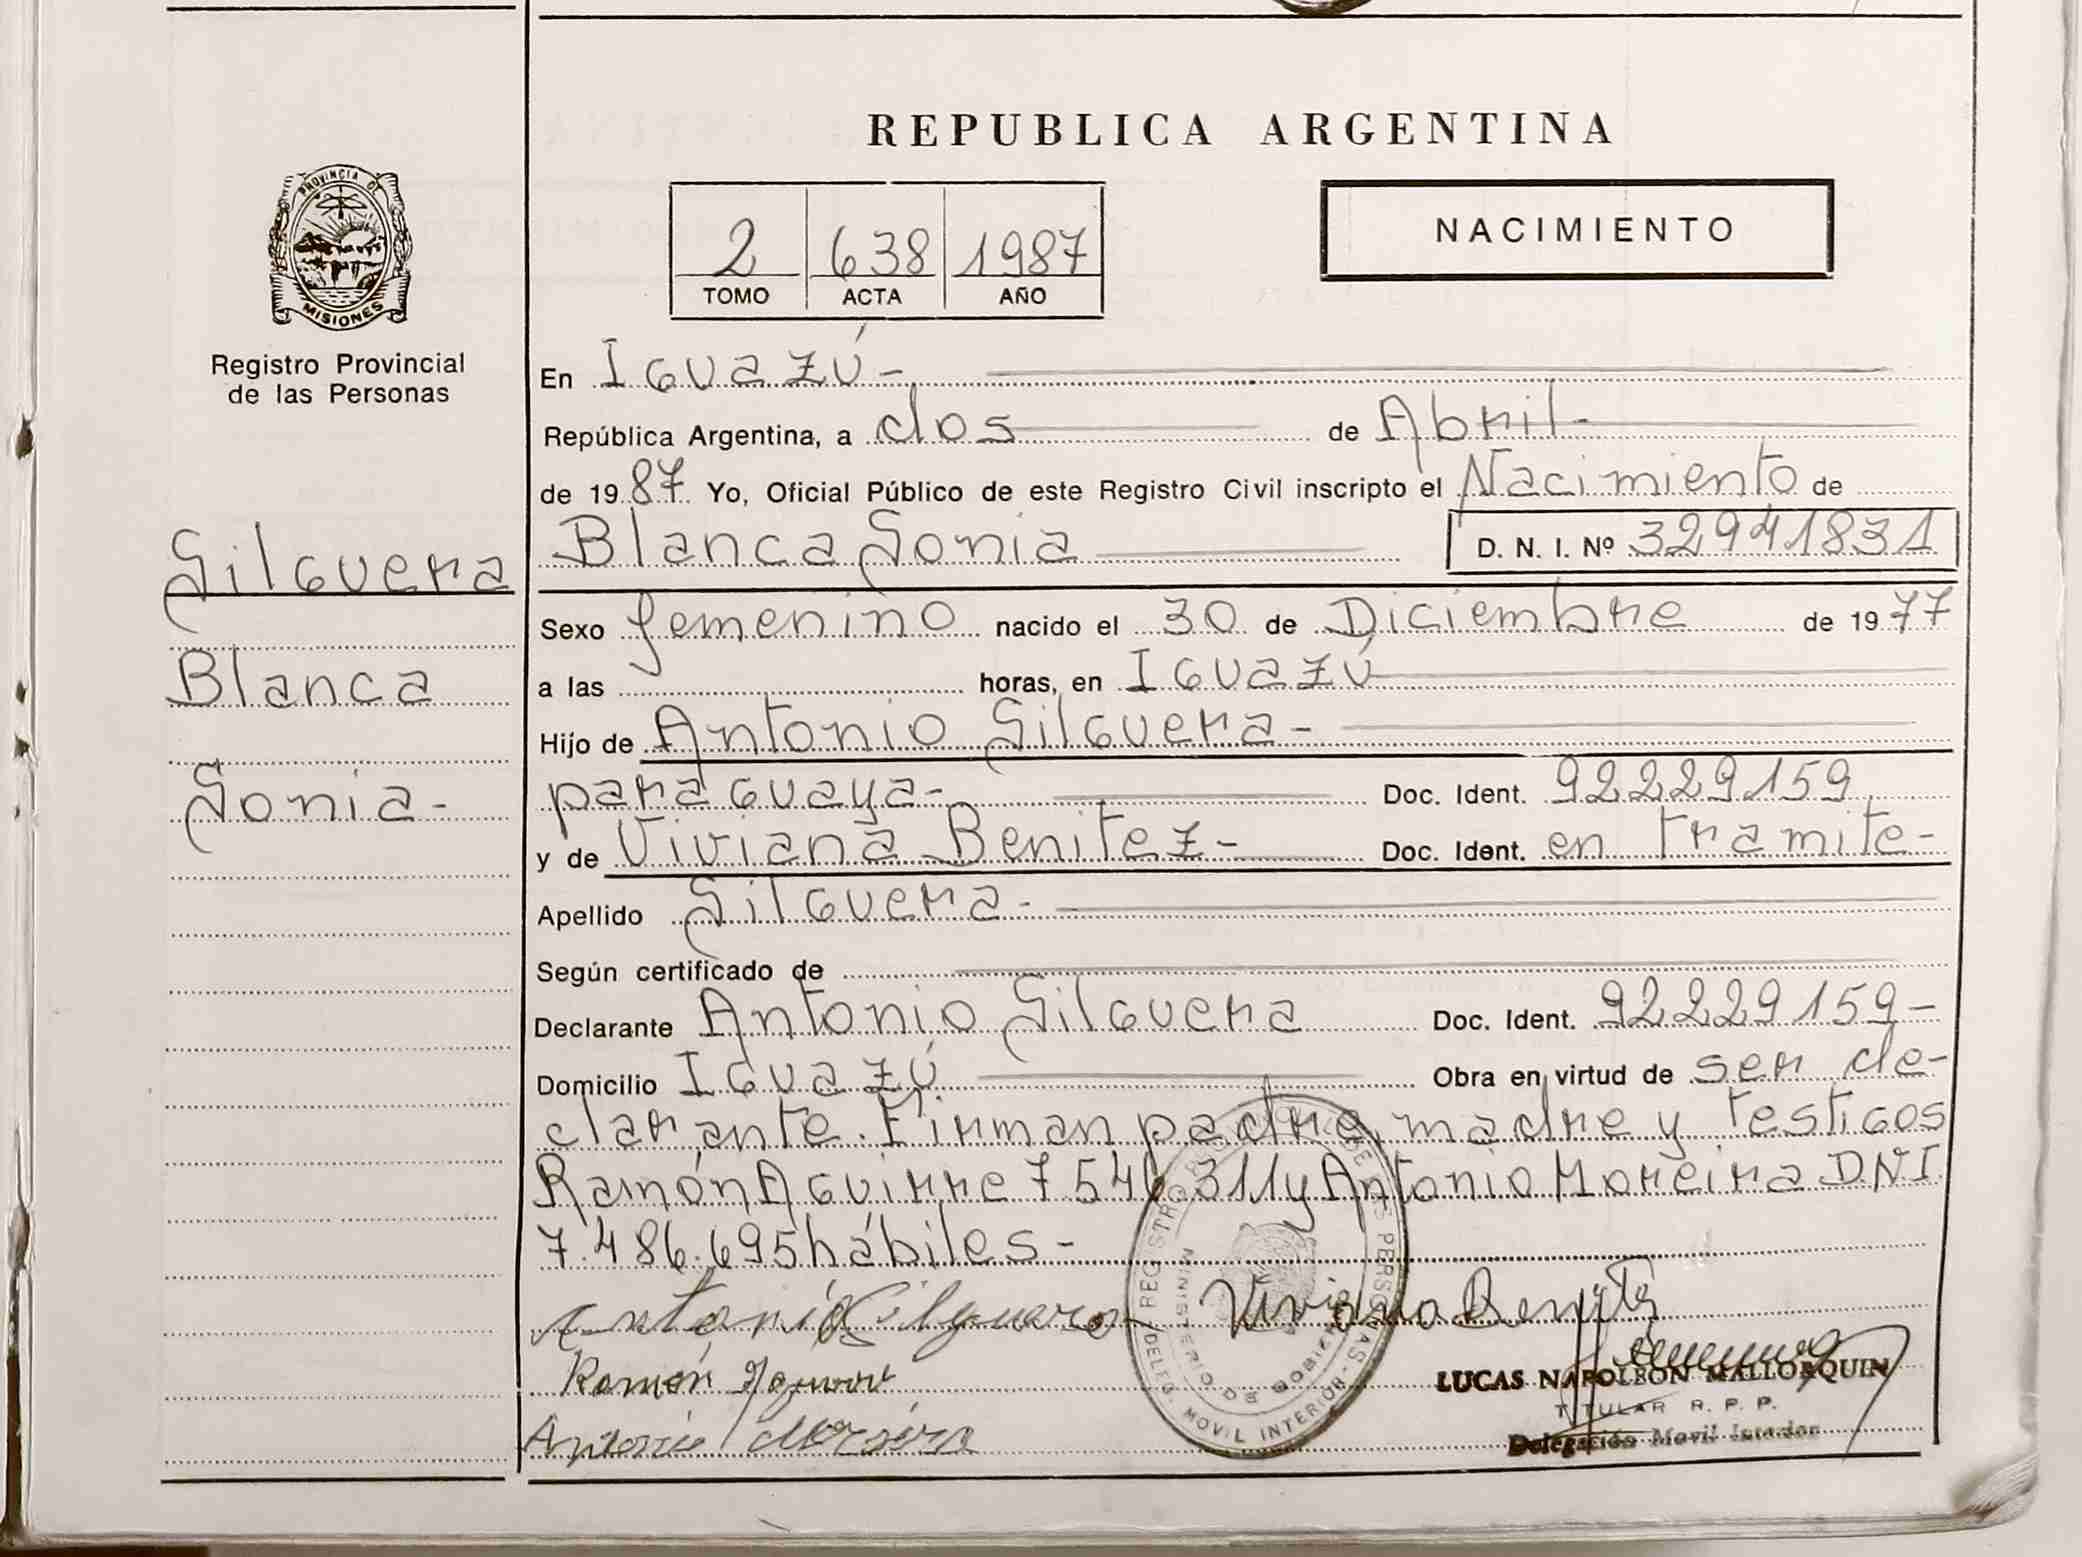 REPUBLICA ARGENTINA
NACIMIENTO
2 638 1987
TOMO ACTA AÑO
PROVINCIA DE
MISIONES
Registro Provincial
de las Personas
Silguera
Blanca
Sonia-
En Iguazú-
República Argentina, a dos de Abril-
de 1987 Yo, Oficial Público de este Registro Civil inscripto el Nacimiento de
Blanca Sonia D. N. I. Nº 32941831
Sexo femenino nacido el 30 de Diciembre de 1977
a las horas, en Iguazú
Hijo de Antonio Silguera-
paraguaya- Doc. Ident. 92229159
y de Viviana Benitez- Doc. Ident. en tramite-
Apellido Silguera-
Según certificado de
Declarante Antonio Silguera Doc. Ident. 92229159-
Domicilio Iguazú Obra en virtud de ser de-
clarante. Firman padre, madre y testigos
Ramón Aguirre 7546311 y Antonio Moreira D.N.I.
7.486.695 hábiles-
Antonio Silguero Viviana Benitez
Ramón
Antonio Moreira
REGISTRO PROVINCIAL DE LAS PERSONAS
MINISTERIO DE GOBIERNO
DELEG. MOVIL INTERIOR
LUCAS NAPOLEON MALLORQUIN
TITULAR R. P. P.
Delegación Movil Interior